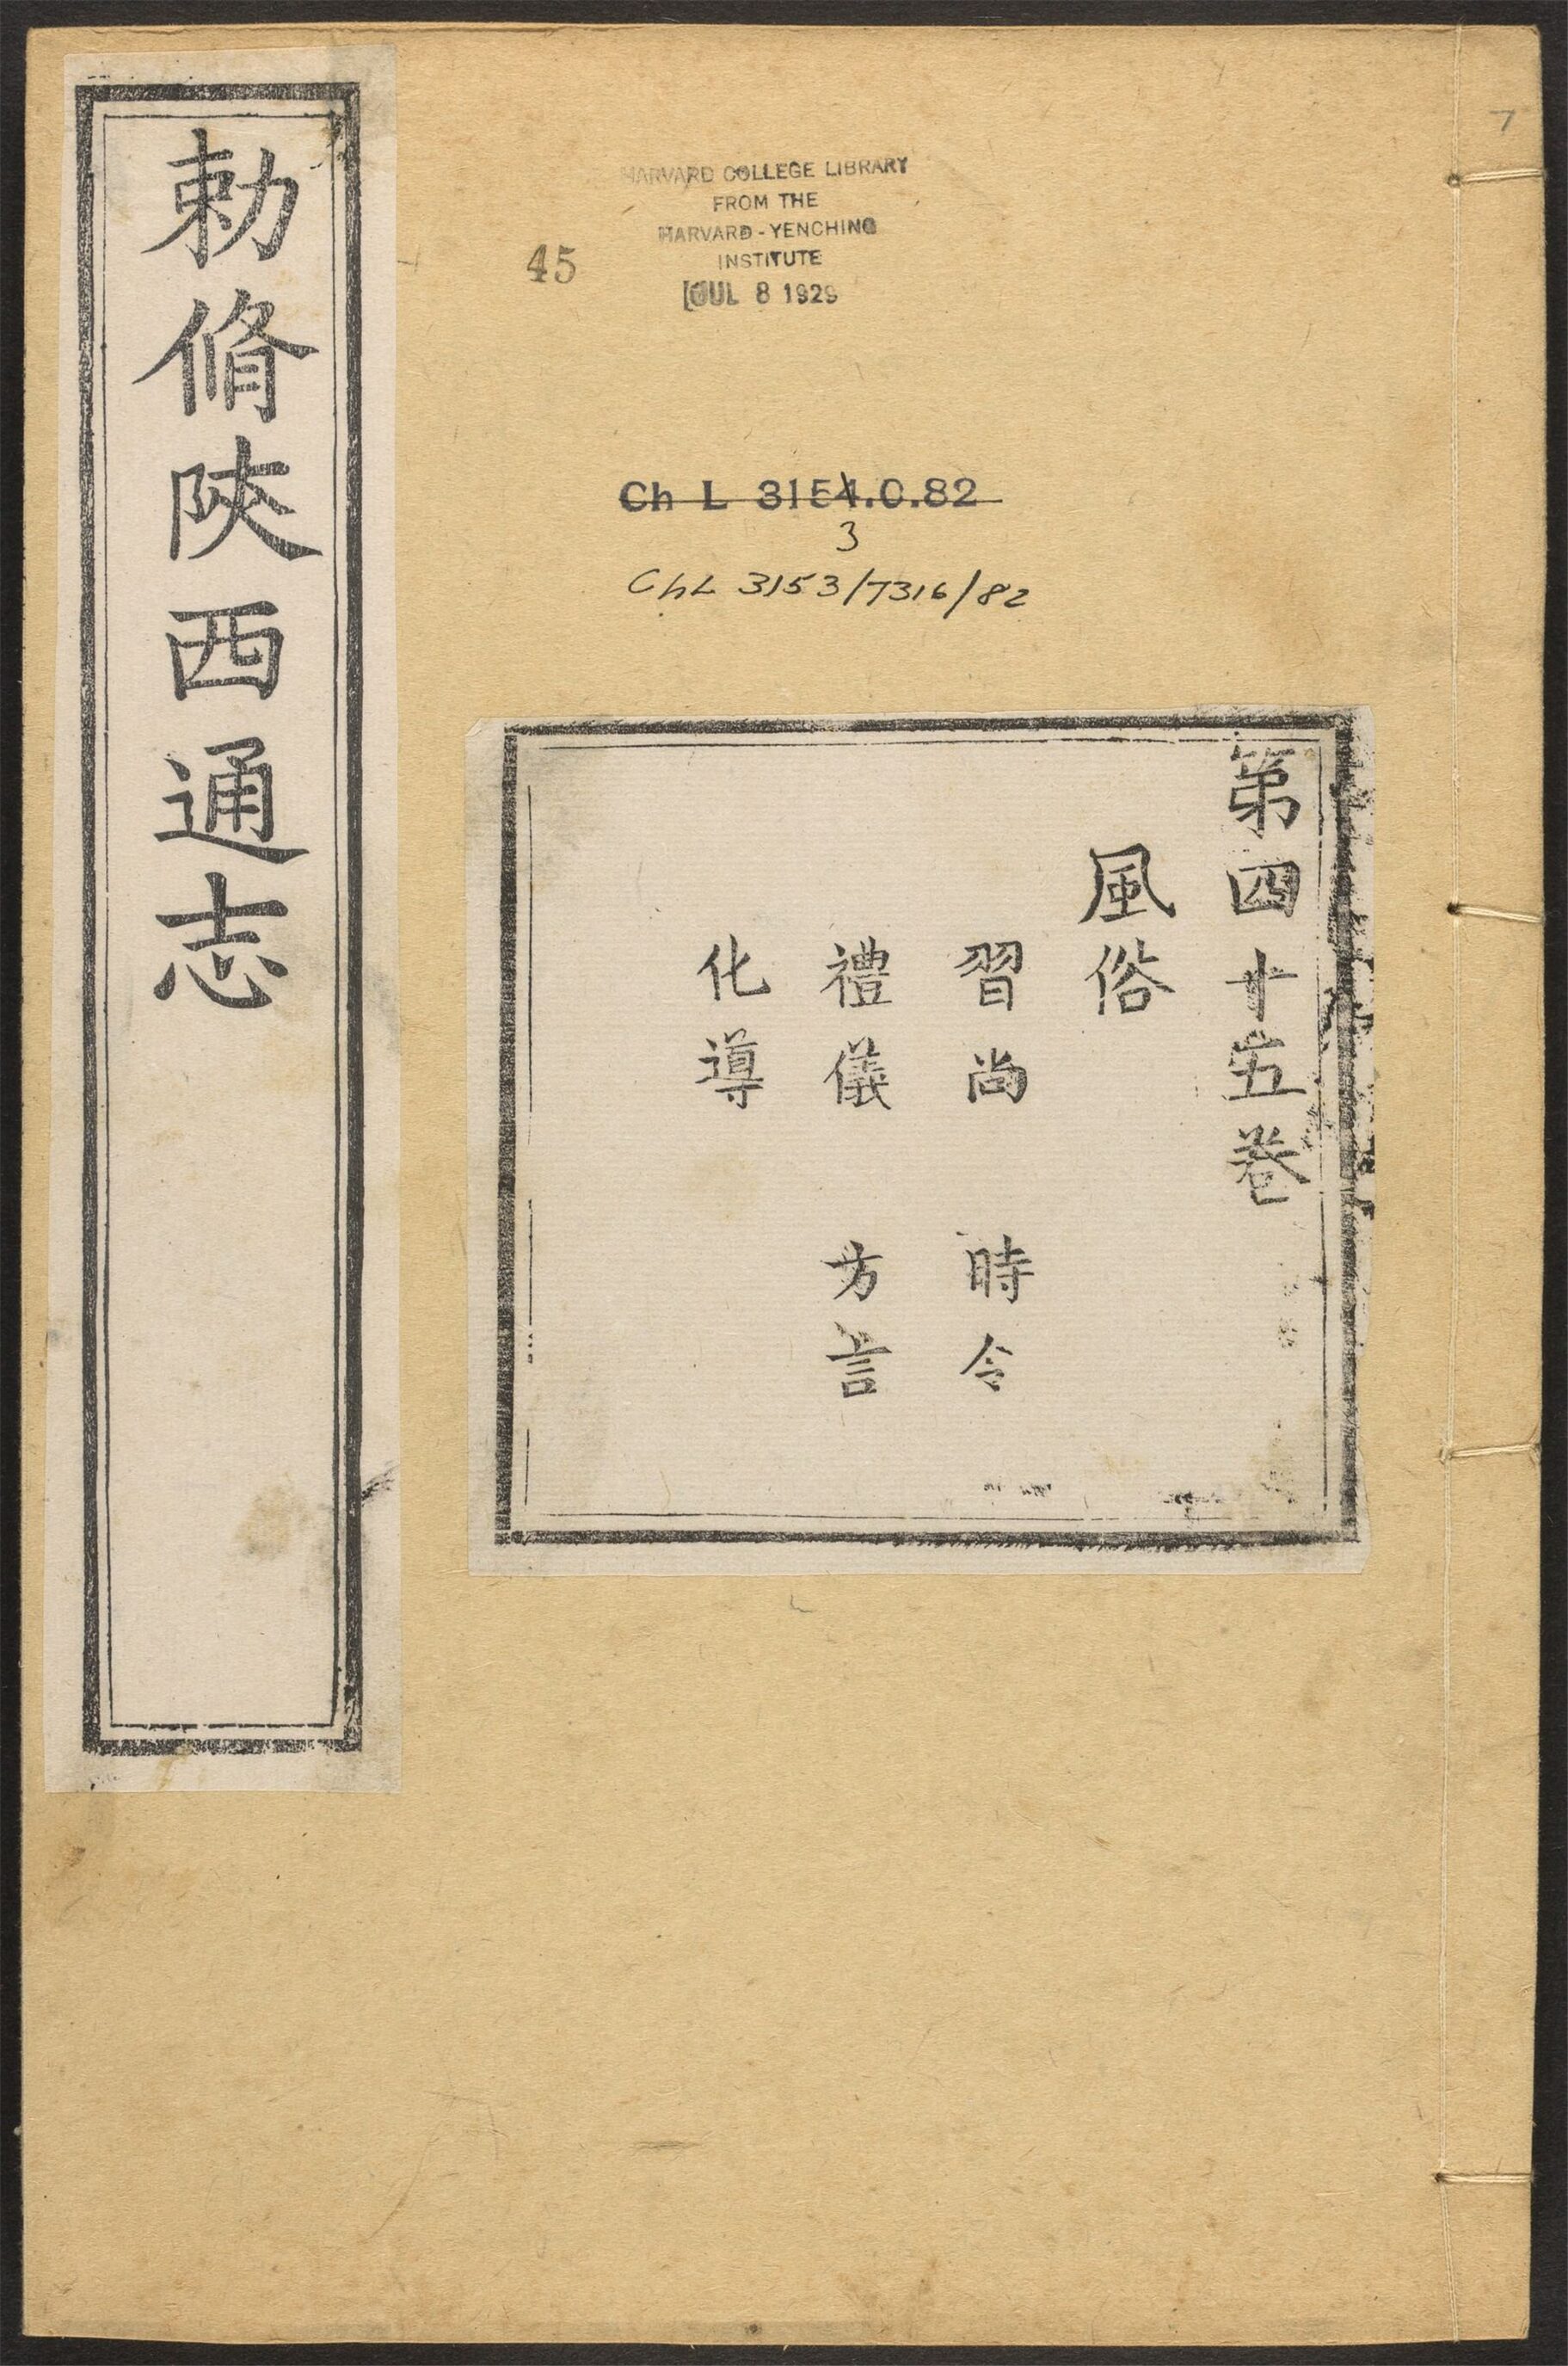 勅脩陜西通志
HARVARD COLLEGE LIBRARY
FROM THE
HARVARD-YENCHING
INSTITUTE
JUL 8 1929
45
Ch L 3154.0.82
3
ChL 3153/7316/82
7
第四十五卷
風俗
習尚 時令
禮儀 方言
化導